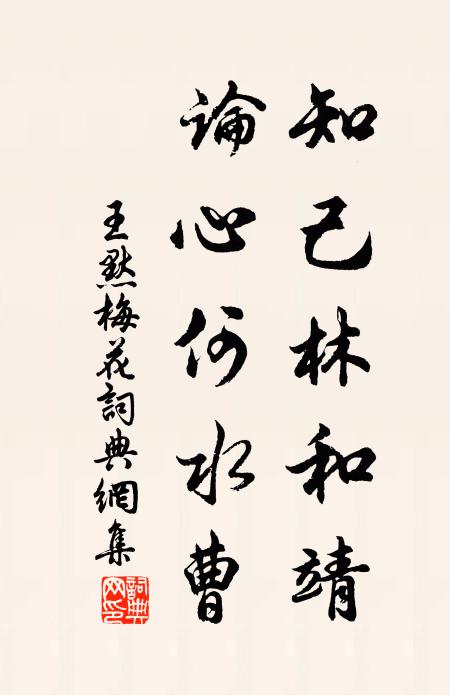 知己林和靖
論心何水曹
王默梅花詞典網集
詞典網印